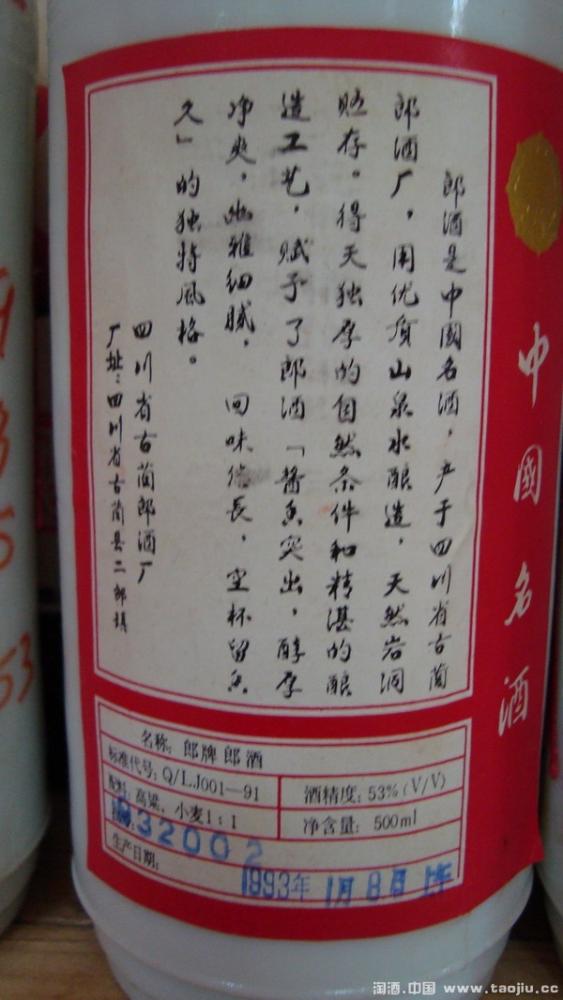 中國名酒
郎酒是中國名酒，产于四川省古蔺
郎酒厂，用优质山泉水酿造，天然岩洞
贮存。得天独厚的自然条件和精湛的酿
造工艺，赋予了郎酒「醬香突出，醇厚
净爽，幽雅细腻，回味悠長，空杯留香
久」的独特風格。
四川省古蔺郎酒厂
厂址：四川省古蔺县二郎镇
名称：郎牌郎酒
标准代号：Q/LJ001—91
酒精度：53%(V/V)
配料：高粱、小麦1：1
净含量：500ml
932002
生产日期：1993年1月8日上午
53
淘酒.中国 www.taojiu.cc